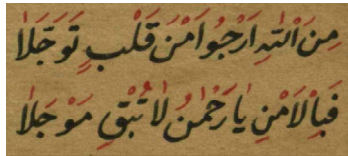 مِنَ اللّٰهِ اَرْجُوا اَمْنَ قَلْبٍ تَوَجَّلَا
فَبِالْاَمْنِ يَا رَحْمٰنُ لَا تُبْقِ مَوْجَلَا